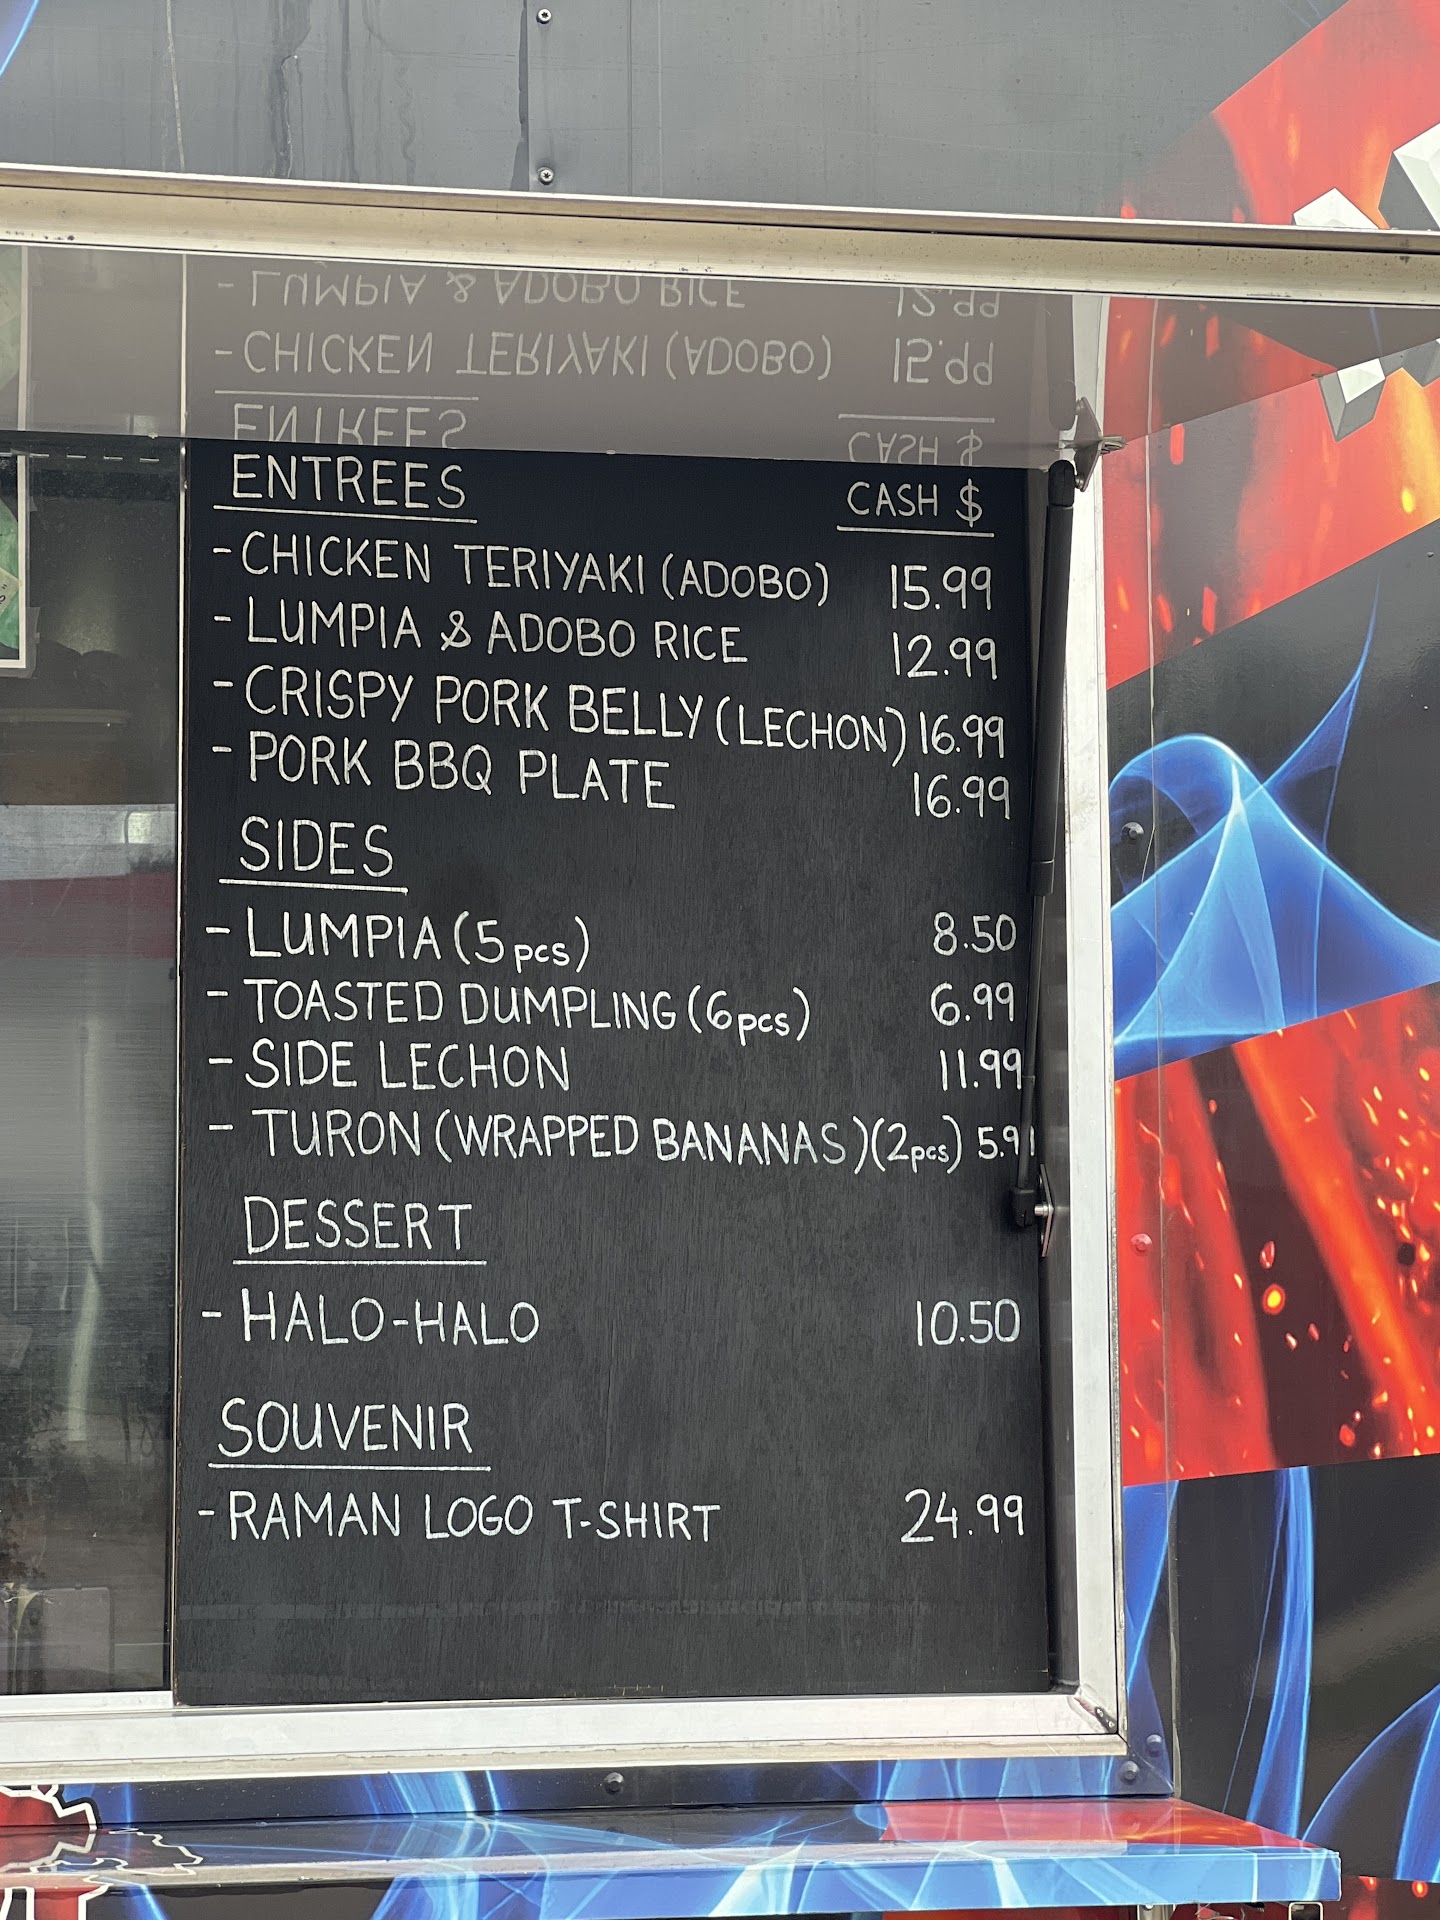 ENTREES CASH $
- CHICKEN TERIYAKI (ADOBO) 15.99
- LUMPIA & ADOBO RICE 12.99
- CRISPY PORK BELLY (LECHON) 16.99
- PORK BBQ PLATE 16.99
SIDES
- LUMPIA (5pcs) 8.50
- TOASTED DUMPLING (6pcs) 6.99
- SIDE LECHON 11.99
- TURON (WRAPPED BANANAS) (2pcs)
DESSERT
- HALO-HALO 10.50
SOUVENIR
- RAMAN LOGO T-SHIRT 24.99